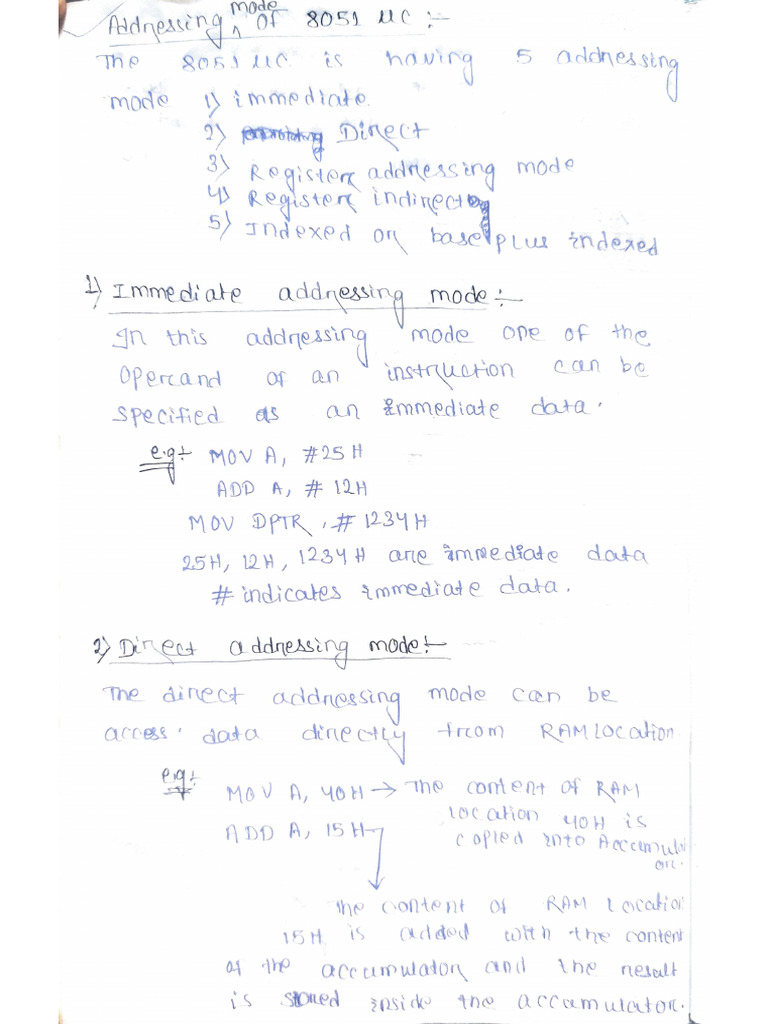 Addressing mode of 8051 uc :-
The 8051 uc is having 5 addressing
mode 1) immediate
2) Direct
3) Register addressing mode
4) Register indirect
5) Indexed or base plus indexed
1) Immediate addressing mode :-
In this addressing mode one of the
operand of an instruction can be
specified as an immediate data.
e.g:- MOV A, #25H
ADD A, # 12H
MOV DPTR, # 1234H
25H, 12H, 1234H are immediate data
# indicates immediate data.
2) Direct addressing mode:-
The direct addressing mode can be
access. data directly from RAM location
e.g:- MOV A, 40H → The content of RAM
location 40H is
copied into Accumulator.
ADD A, 15H
The content of RAM location
15H is added with the content
of the accumulator and the result
is stored inside the accumulator.